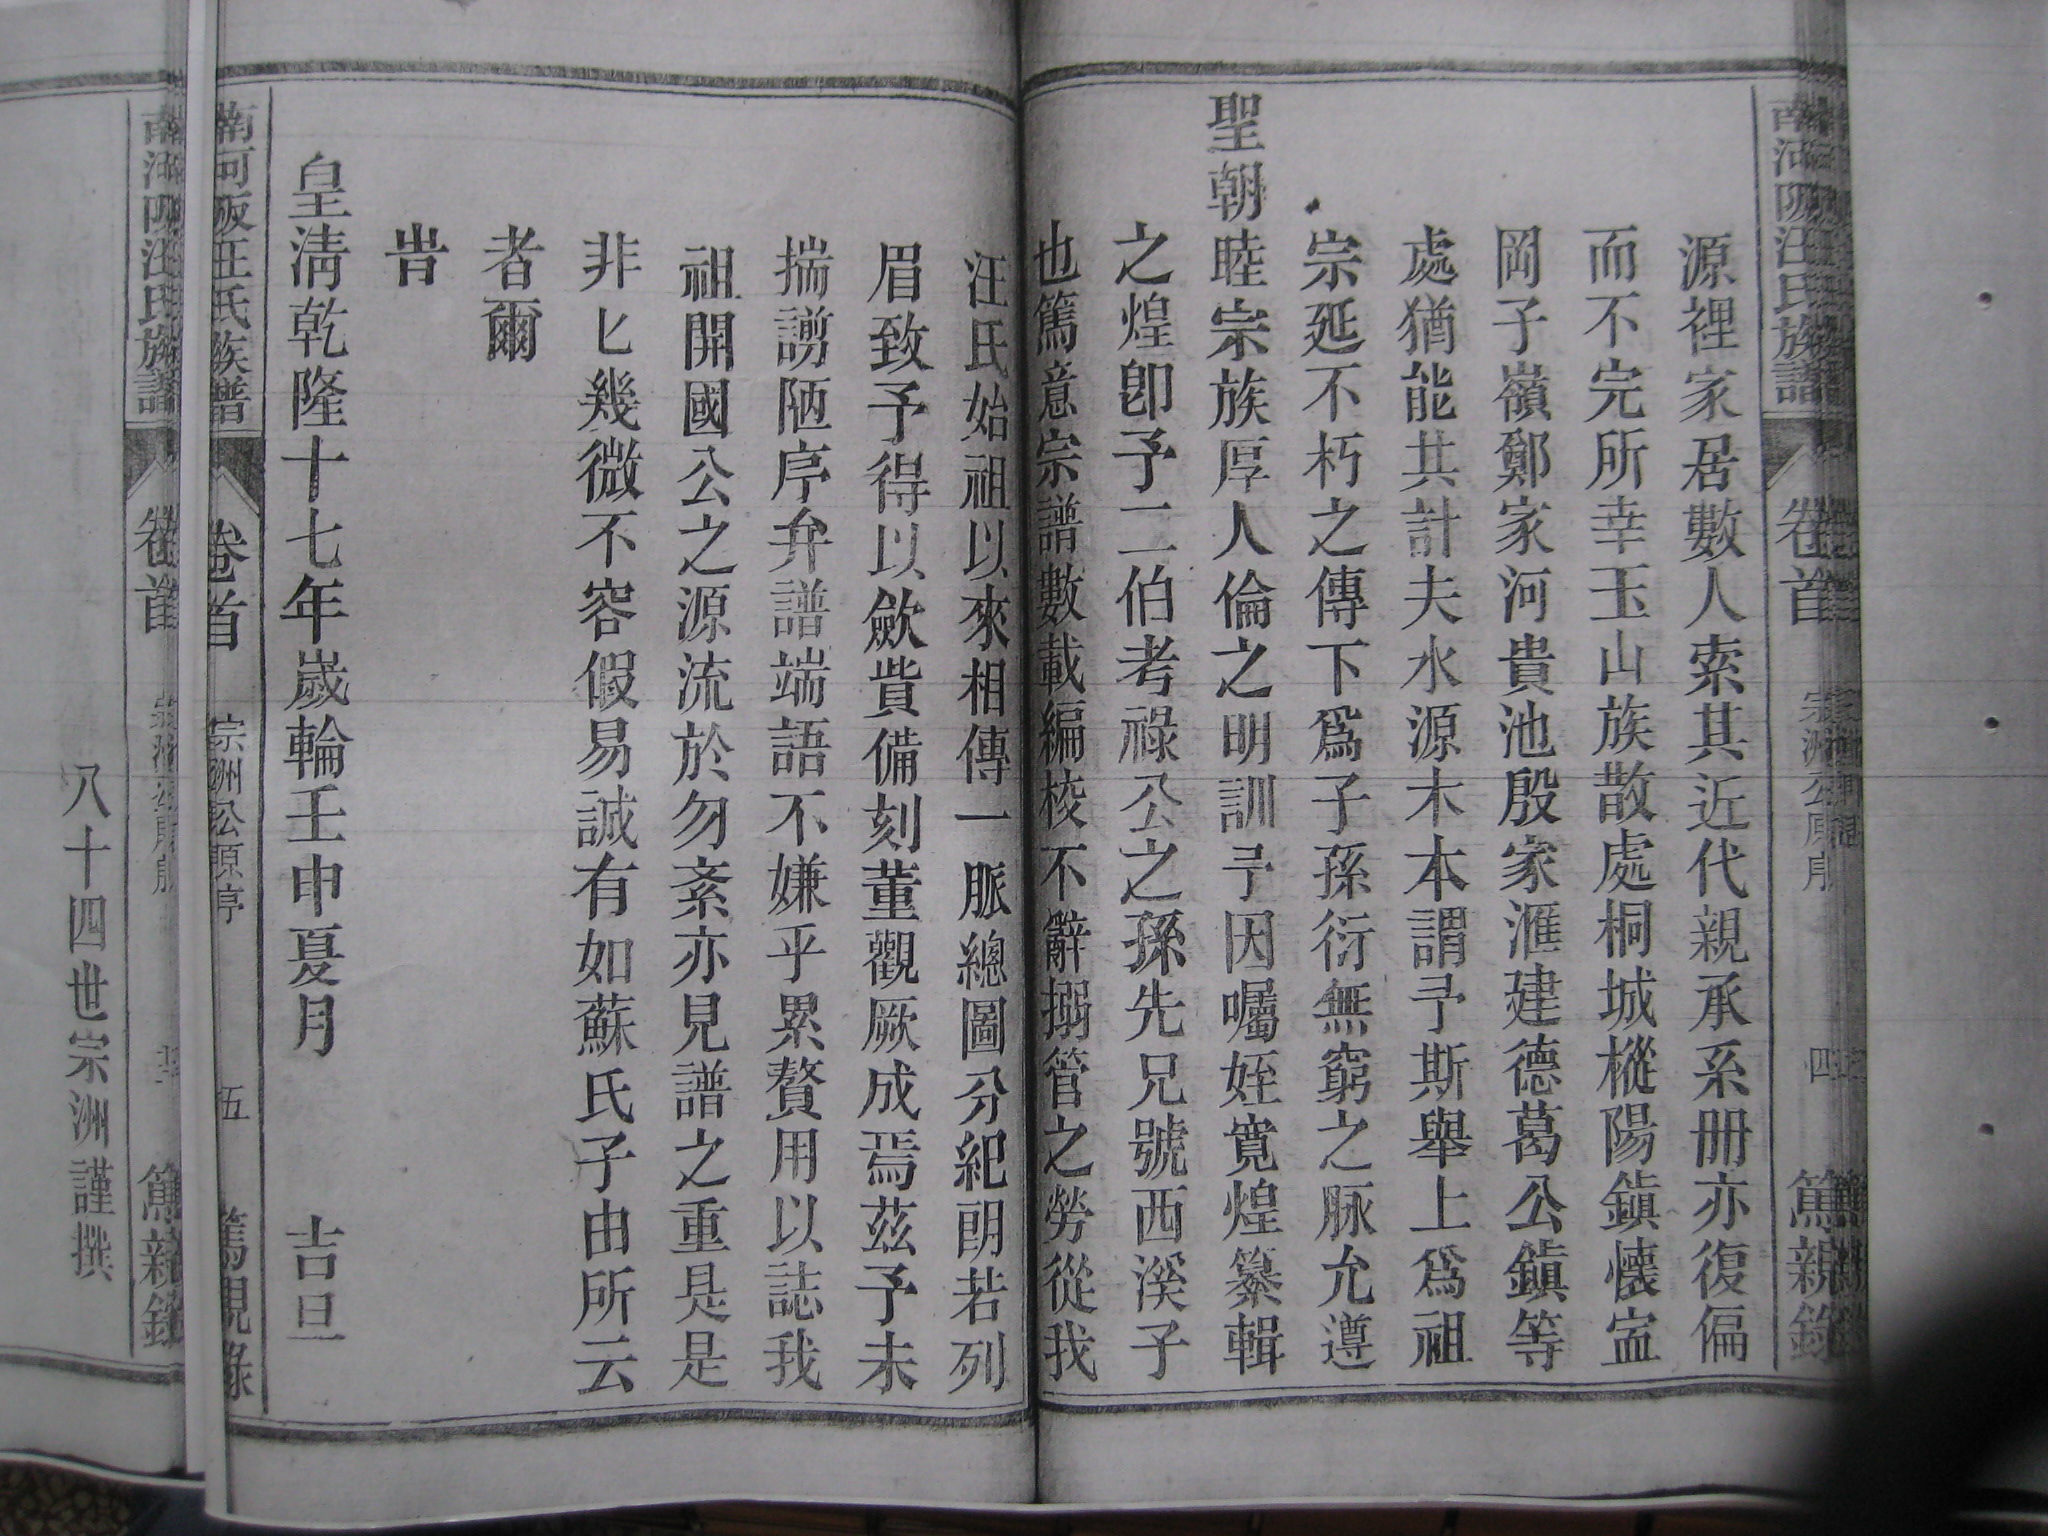 南河阪汪氏族譜
卷首
宗洲公原序
四
篤親錄
源裡家居數人索其近代親承系册亦復偏
而不完所幸玉山族散處桐城樅陽鎮懷寍
岡子嶺鄭家河貴池殷家滙建德葛公鎮等
處猶能共計夫水源木本謂予斯舉上爲祖
宗延不朽之傳下爲子孫衍無窮之脉允遵
聖朝睦宗族厚人倫之明訓予因囑姪寛煌纂輯
之煌卽予二伯考祿公之孫先兄號西溪子
也篤意宗譜數載編校不辭搦管之勞從我
汪氏始祖以來相傳一脈總圖分紀朗若列
眉致予得以歛貲備刻董觀厥成焉茲予未
揣謭陋序弁譜端語不嫌乎累贅用以誌我
祖開國公之源流於勿紊亦見譜之重是是
非匕幾微不容假易誠有如蘇氏子由所云
者爾
旹
皇淸乾隆十七年歲輪壬申夏月 吉旦
南河阪汪氏族譜
卷首
宗洲公原序
五
篤親錄
南河阪汪氏族譜
卷首
篤親錄
八十四世宗洲謹撰